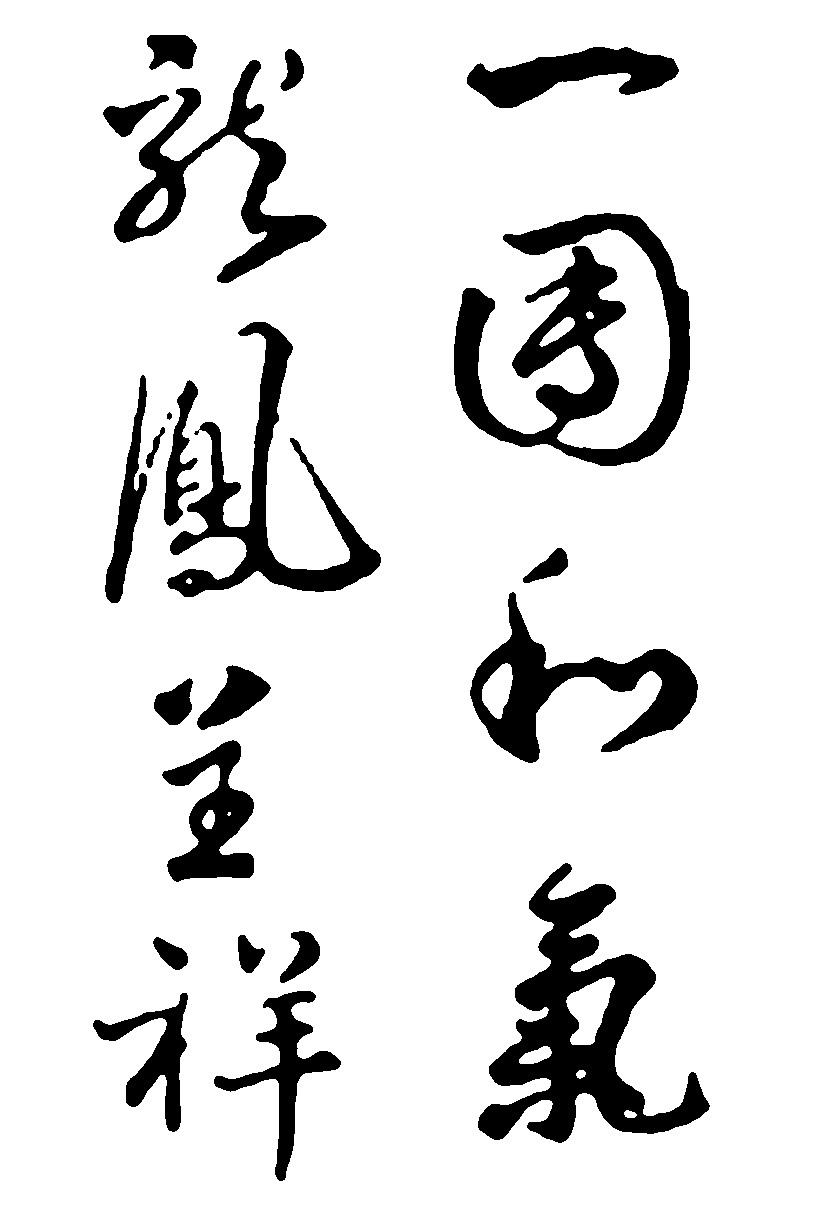 一團和氣
龍鳳呈祥